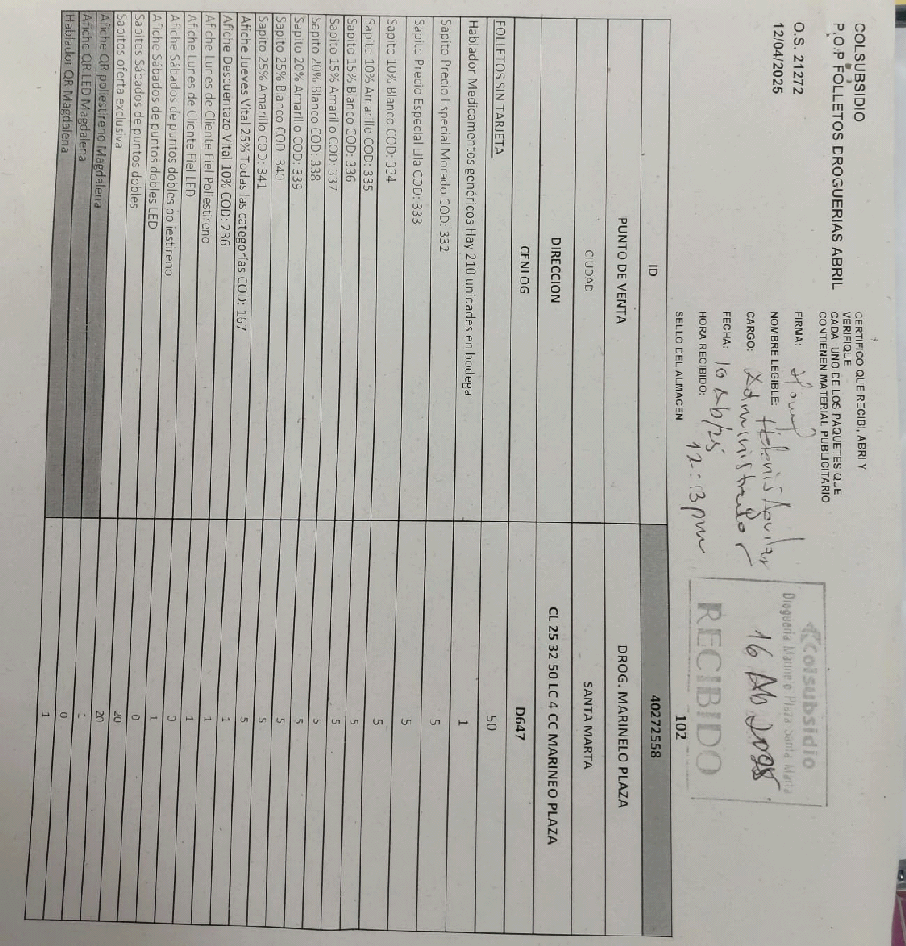 COLSUBSIDIO
P.O.P FOLLETOS DROGUERIAS ABRIL
O.S. 21272
12/04/2025
CERTIFICO QUE RECIBI, ABRI Y
VERIFIQUE
CADA UNO DE LOS PAQUETES QUE
CONTIENEN MATERIAL PUBLICITARIO
FIRMA:
NOMBRE LEGIBLE: Helenis Aguilar
CARGO: Administrador
FECHA: 16 Ab/25
HORA RECIBIDO: 12:13pm
SELLO DEL ALMACEN
Colsubsidio
Drogueria Marineo Plaza Santa Marta
16 Ab 2025
RECIBIDO
102
ID 40272558
PUNTO DE VENTA DROG. MARINELO PLAZA
CIUDAD SANTA MARTA
DIRECCION CL 25 32 50 LC 4 CC MARINEO PLAZA
CENLOG D647
FOLLETOS SIN TARJETA 50
Hablador Medicamentos genéricos Hay 210 unidades en bodega 1
Sapito Precio Especial Morado COD: 332 5
Sapito Precio Especial Lila COD: 333 5
Sapito 10% Blanco COD: 334 5
Sapito 10% Amarillo COD: 335 5
Sapito 15% Blanco COD: 336 5
Sapito 15% Amarillo COD: 337 5
Sapito 20% Blanco COD: 338 5
Sapito 20% Amarillo COD: 339 5
Sapito 25% Blanco COD: 340 5
Sapito 25% Amarillo COD: 341 5
Afiche Jueves Vital 25% Todas las categorías COD: 167 5
Afiche Descuentazo Vital 10% COD: 236 1
Afiche Lunes de Cliente Fiel Poliestireno 1
Afiche Lunes de Cliente Fiel LED 1
Afiche Sábados de puntos dobles poliestireno 0
Afiche Sábados de puntos dobles LED 1
Sapitos Sábados de puntos dobles 0
Sapitos oferta exclusiva 20
Afiche QR poliestireno Magdalena 20
Afiche QR LED Magdalena
Hablador QR Magdalena 0
1